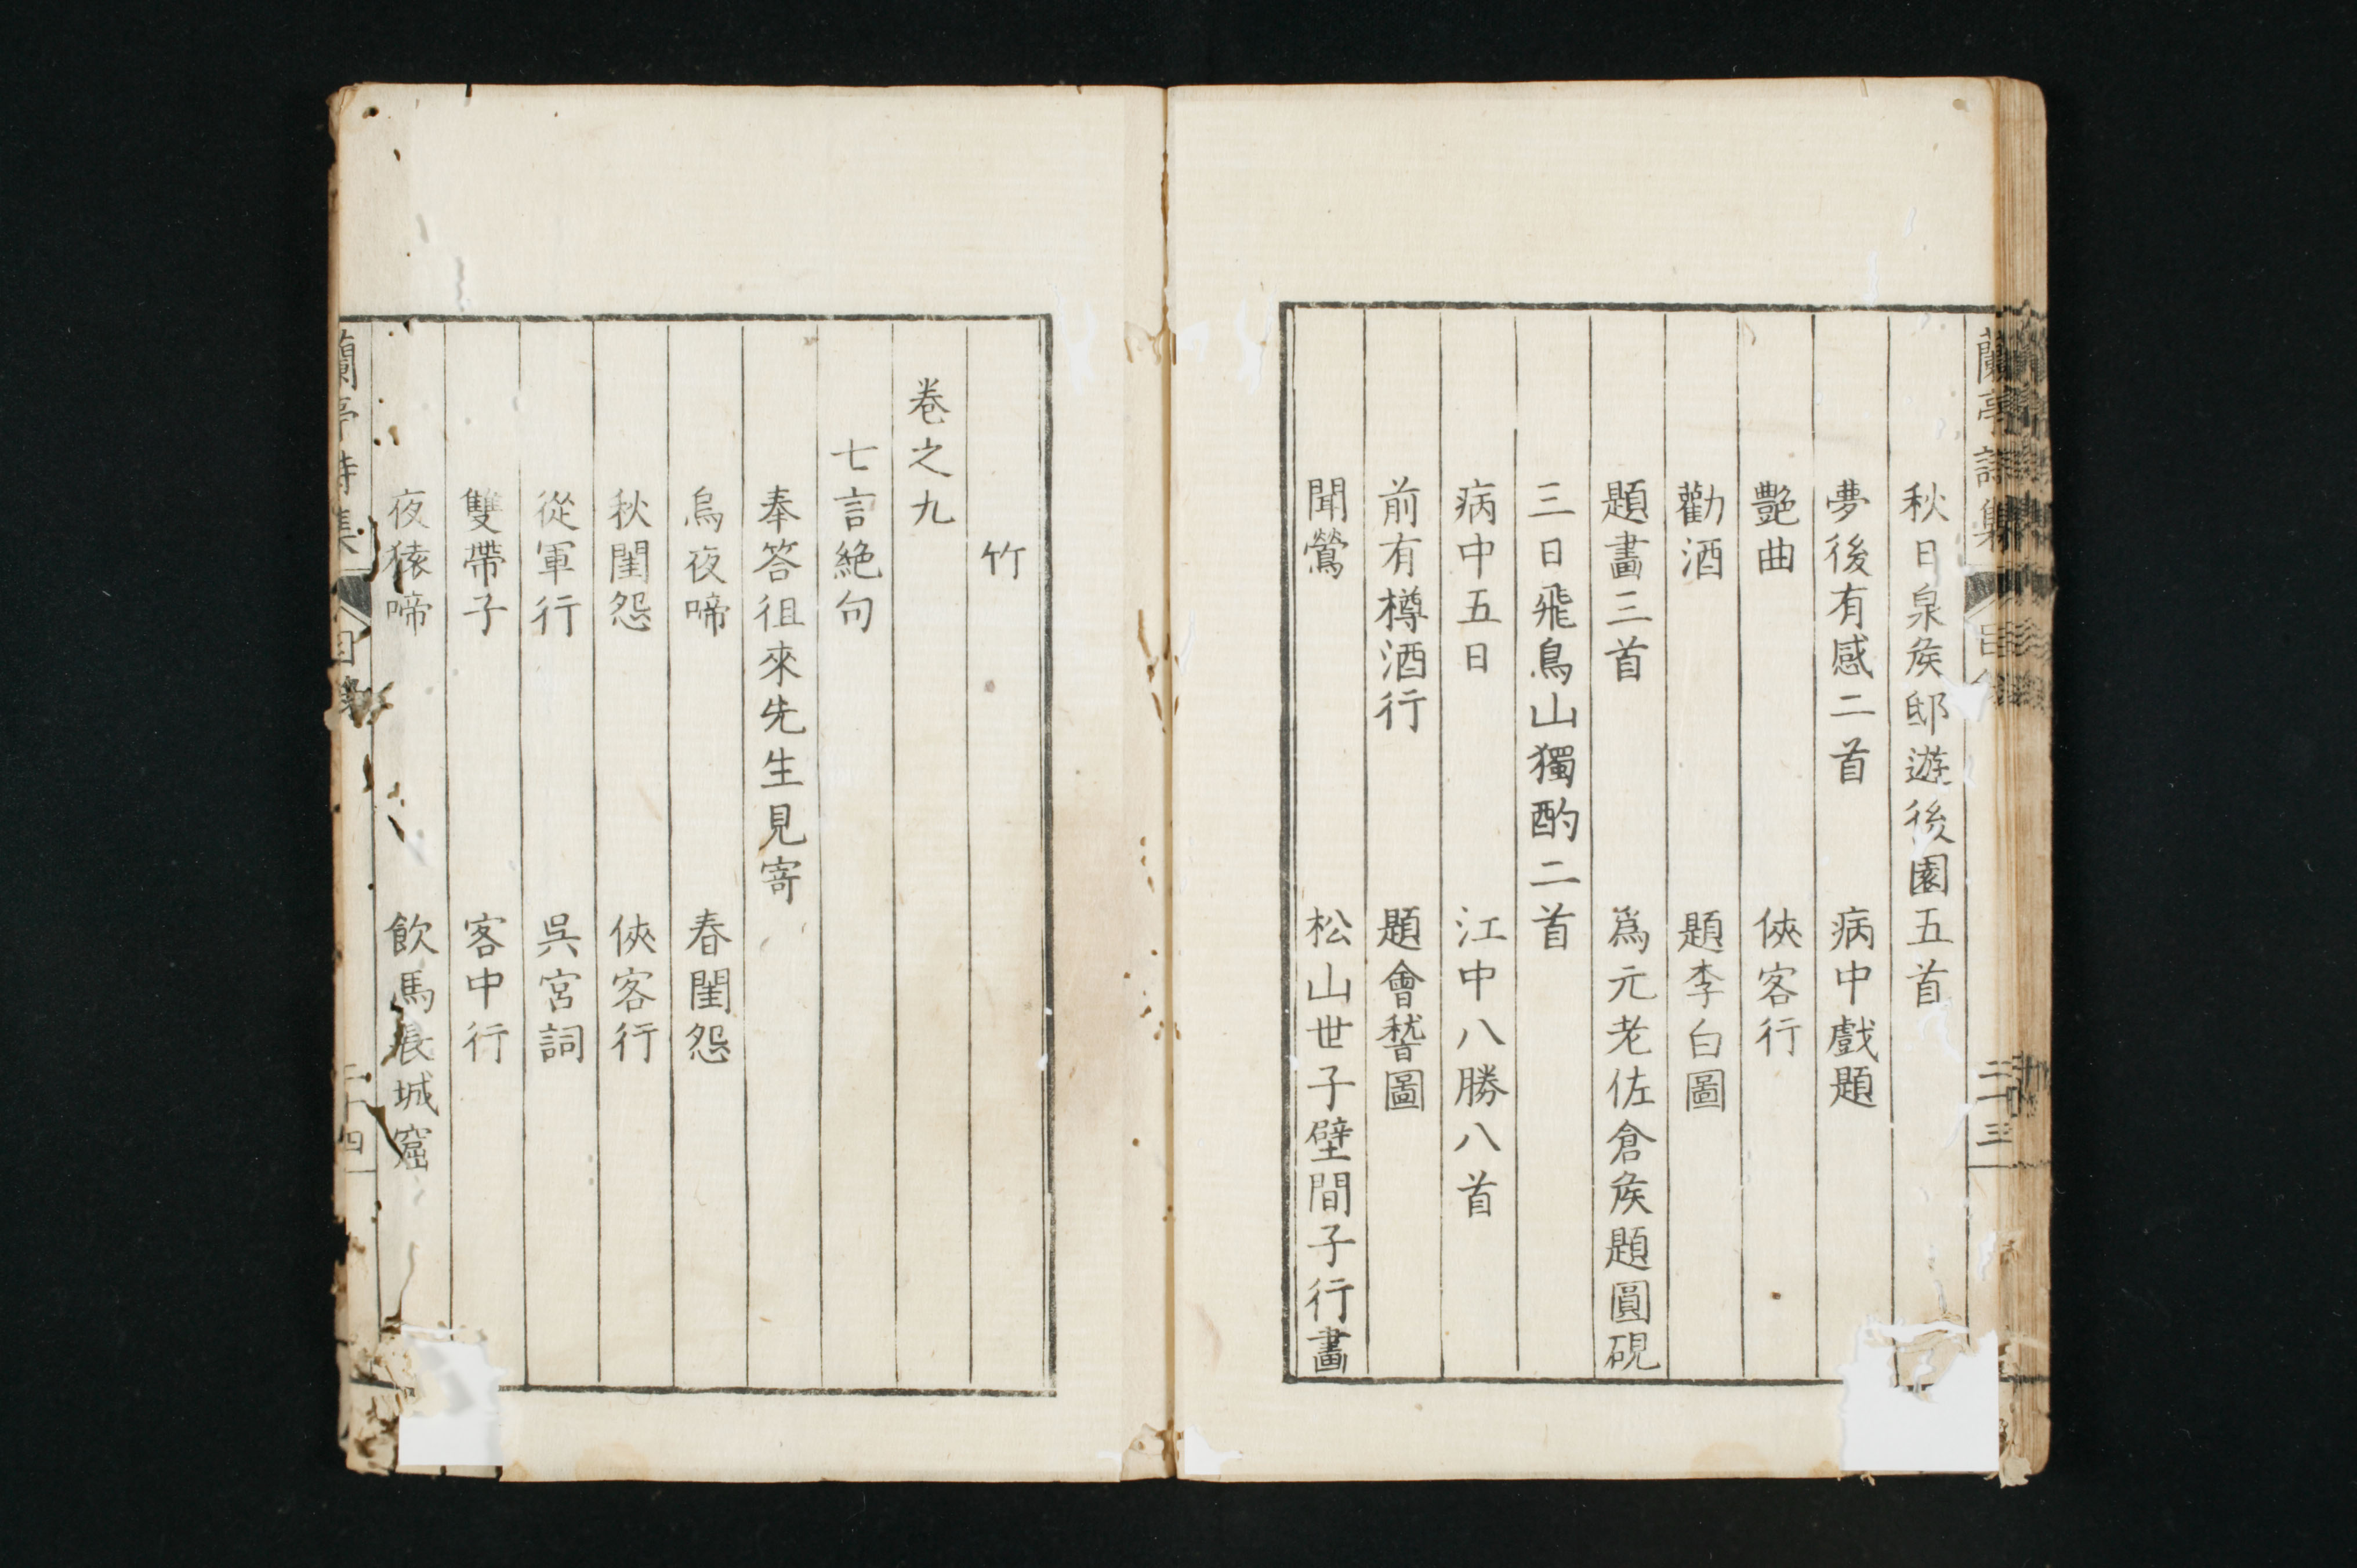 蘭亭詩集
二十三
秋日泉矦邸遊後園五首
夢後有感二首 病中戲題
艷曲 俠客行
勸酒 題李白圖
題畫三首 爲元老佐倉矦題圓硯
三日飛鳥山獨酌二首
病中五日 江中八勝八首
前有樽酒行 題會嵇圖
聞鶯 松山世子壁間子行畫
竹
卷之九
七言絶句
奉答徂來先生見寄
烏夜啼 春閨怨
秋閨怨 俠客行
從軍行 吳宮詞
雙帶子 客中行
夜猿啼 飲馬長城窟
蘭亭詩集
二十四